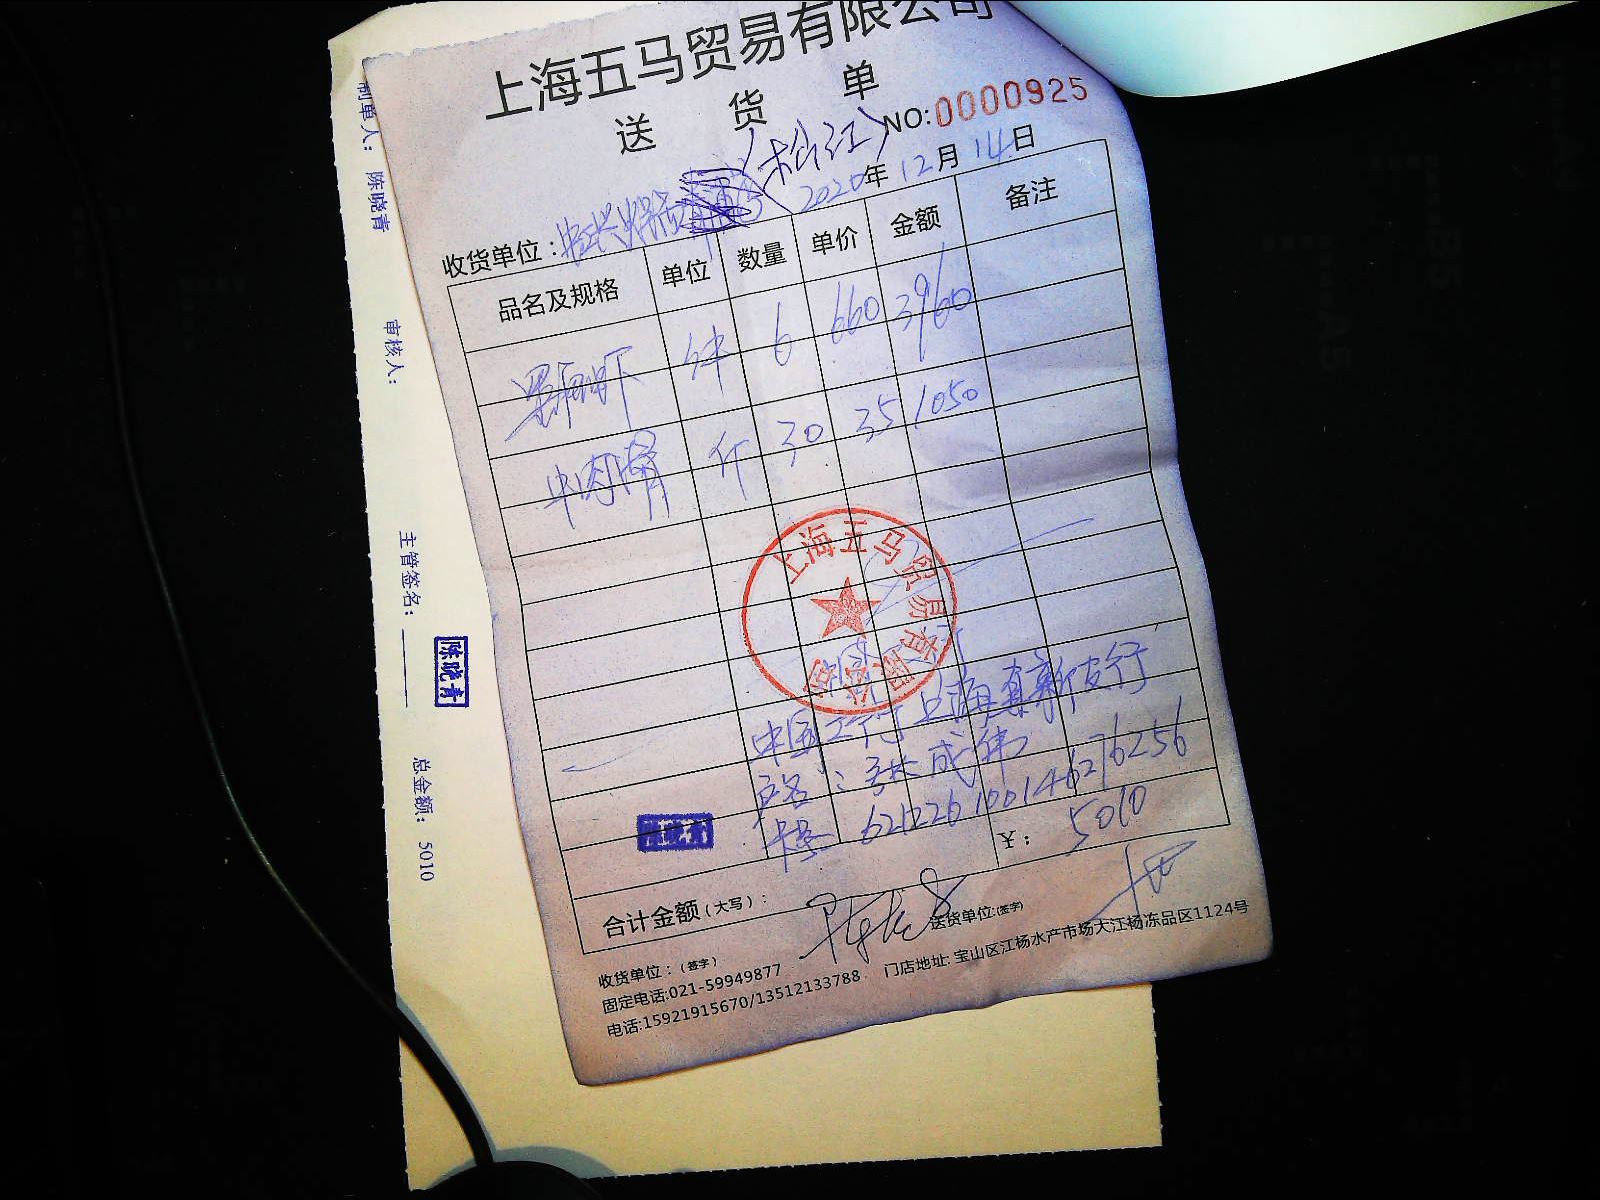 上海五马贸易有限公司
送货单
(松江)
NO:0000925
收货单位:
2020年12月14日
品名及规格 单位 数量 单价 金额 备注
黑虎虾 件 6 660 3960
牛肉 斤 30 35 1050
上海五马贸易有限公司
中国工行上海真新支行
户名:张成伟
卡号 6212261001446276256
陈晓青
合计金额(大写): ¥: 5010
收货单位:(签字) 送货单位:(签字)
固定电话:021-59949877 门店地址:宝山区江杨水产市场大江杨冻品区1124号
电话:15921915670/13512133788
制单人: 陈晓青 审核人: 主管签名: 陈晓青 总金额: 5010